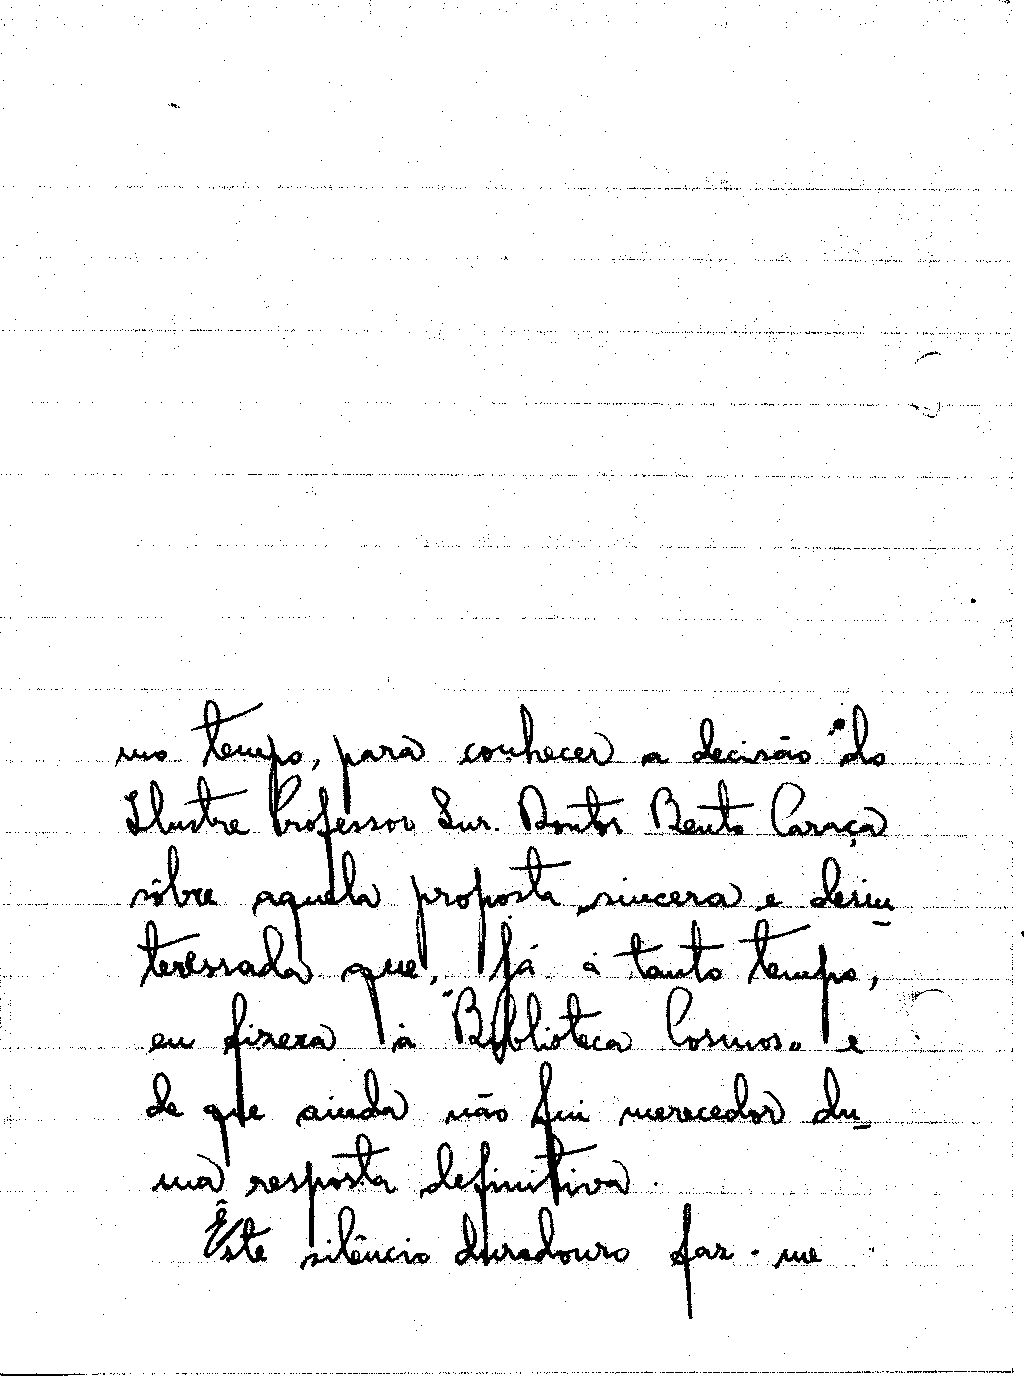 mo tempo, para conhecer a decisão do
Ilustre Professor Snr. Doutor Bento Caraça
sôbre aquela proposta sincera e desin_
teressada que, já á tanto tempo,
eu fizera à "Biblioteca Cosmos" e
de que ainda não fui merecedor du_
ma resposta definitiva.
Êste silêncio duradouro faz-me